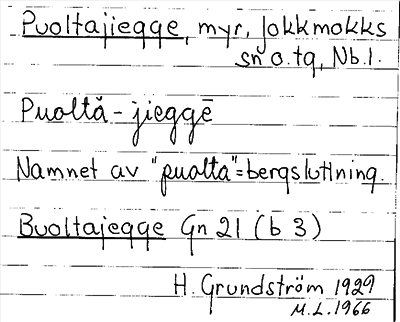 Puoltajiegge, myr, Jokkmokks
sn o. tg, Nb.l.
Puoltă-jieggē
Namnet av "puolta"=bergslutning.
Buoltajegge Gn 21 (b 3)
H. Grundström 1929
M.L. 1966